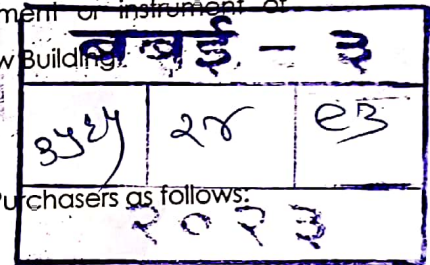 ment or instrument of
w Building.
बबई - ३
२४
Purchasers as follows:
२०२३